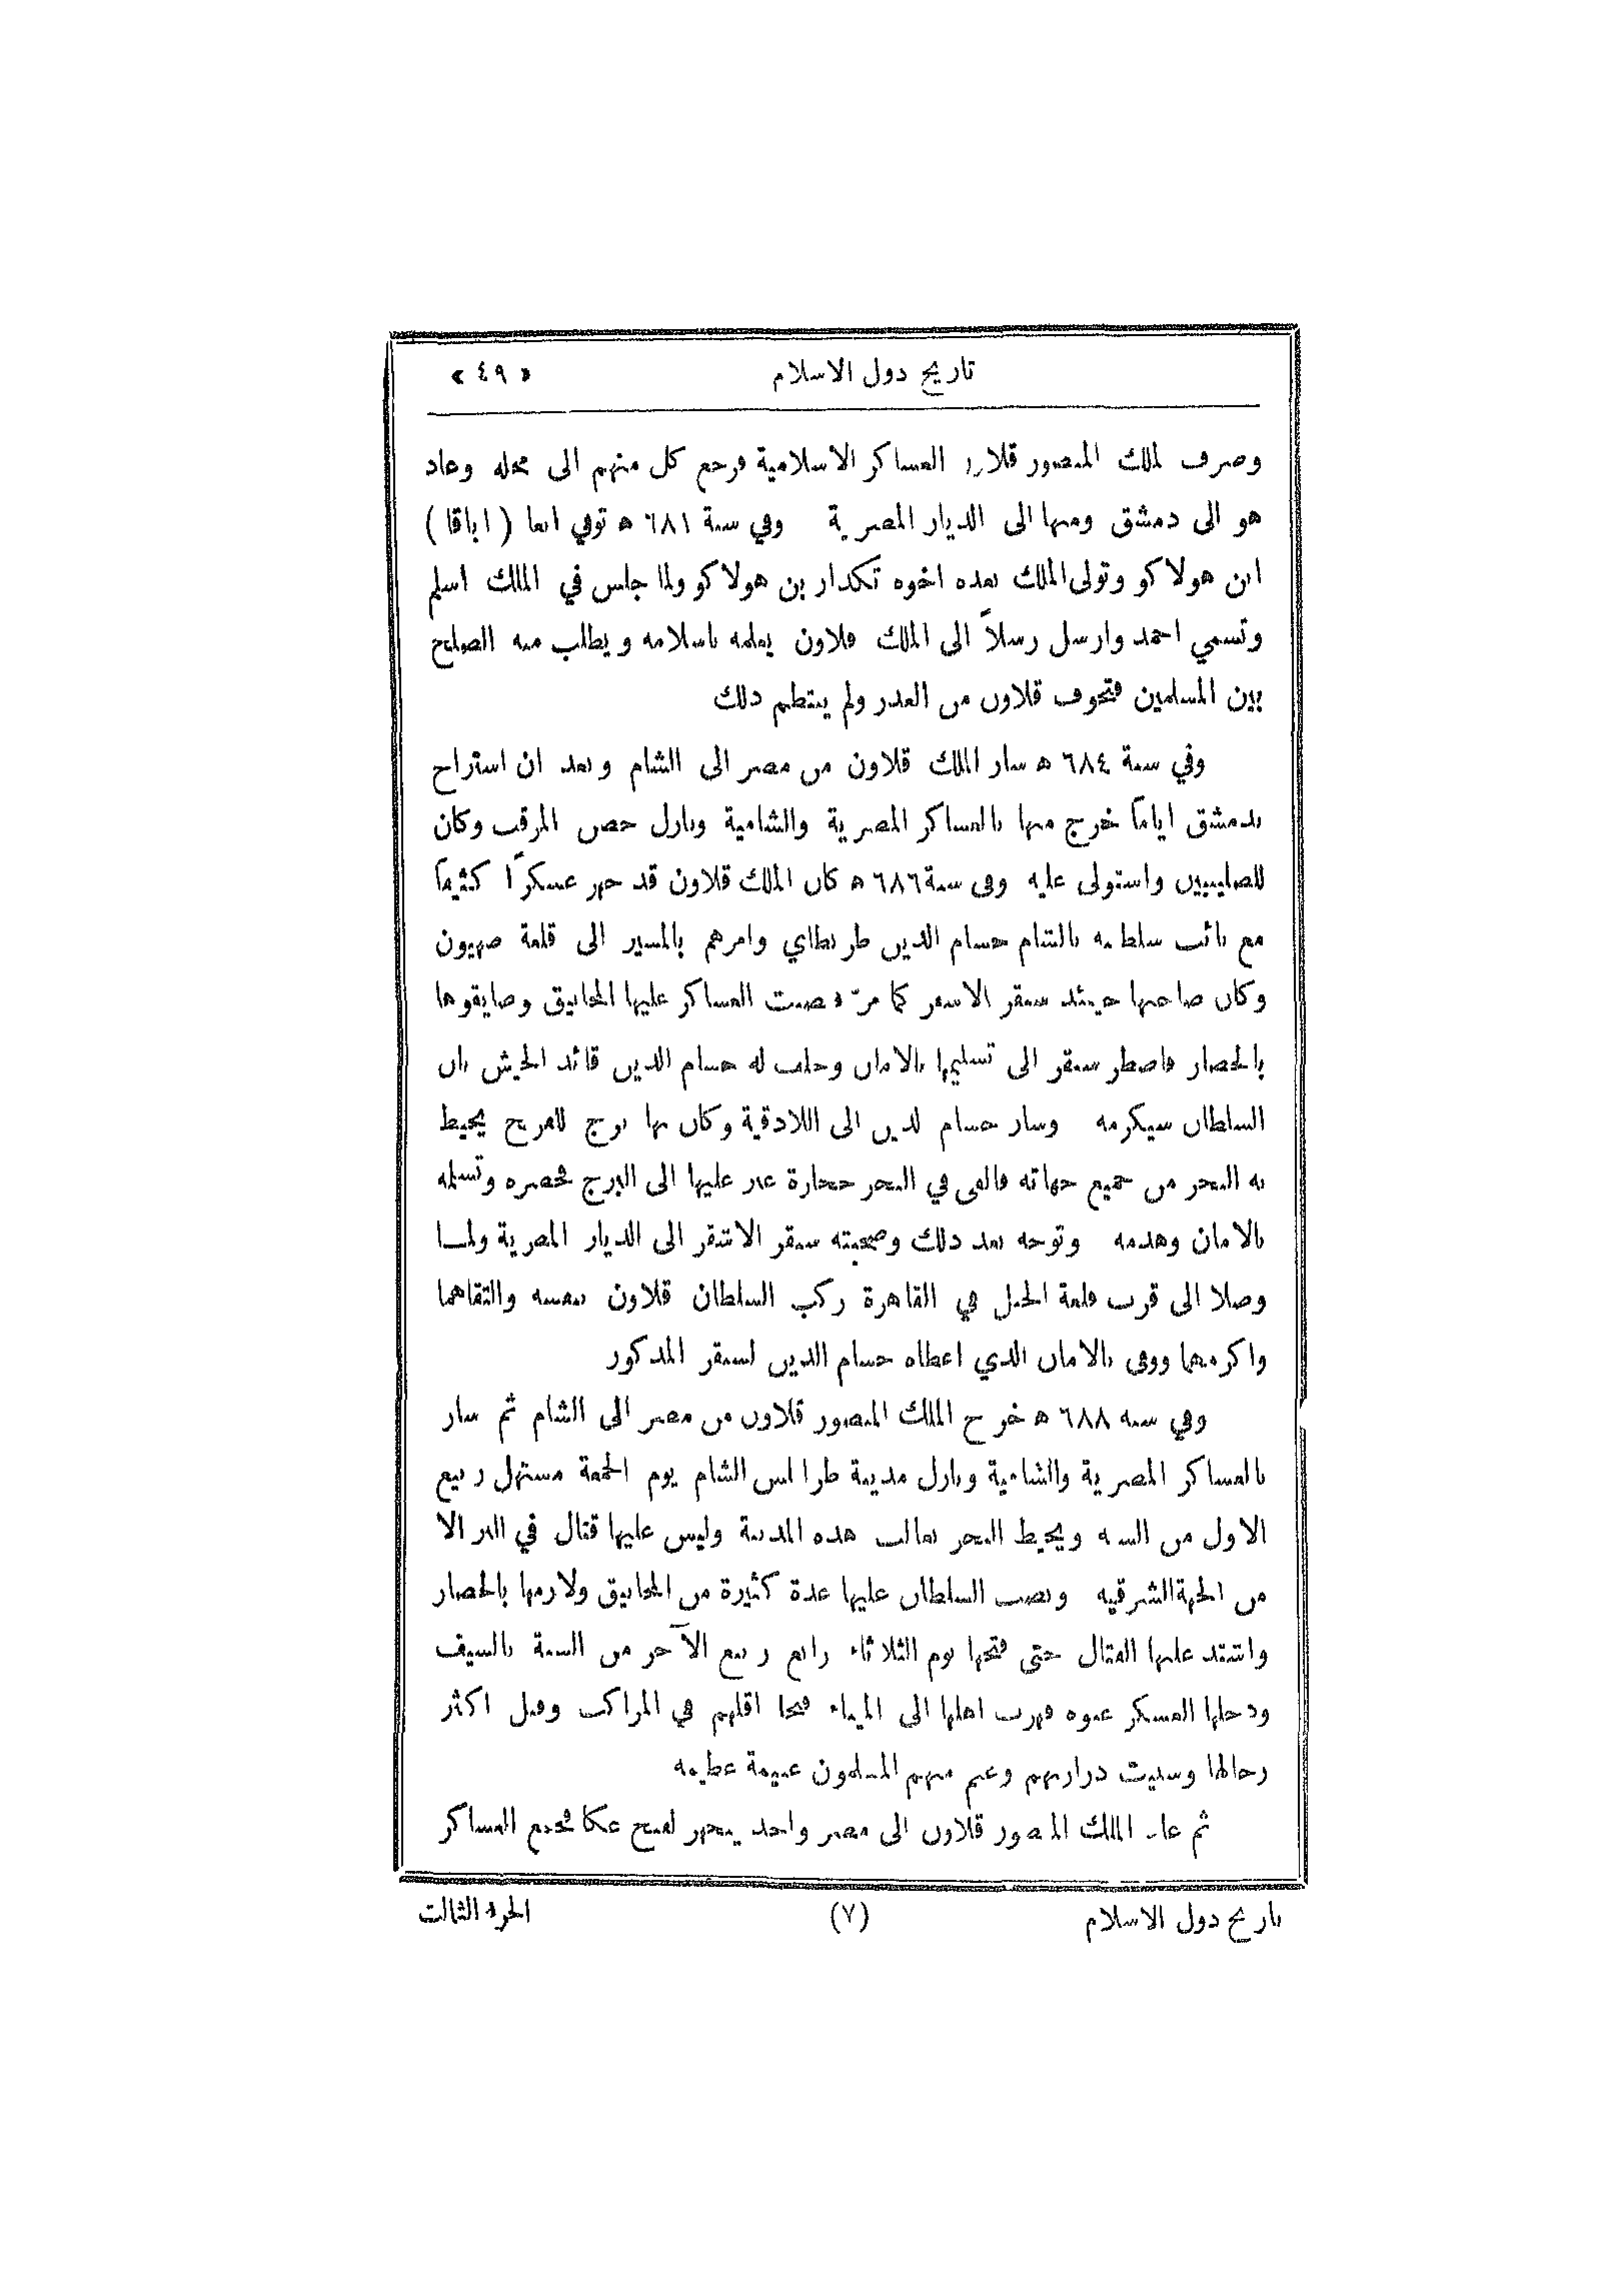 تاريخ دول الاسلام
« ٤٩ »
وصرف الملك المنصور قلاون العساكر الاسلامية فرجع كل منهم الى محله وعاد
هو الى دمشق ومنها الى الديار المصرية وفي سنة ٦٨١ ه توفي ابغا ( اباقا )
ابن هولاكو وتولى الملك بعده اخوه تكدار بن هولاكو ولما جلس في الملك اسلم
وتسمي احمد وارسل رسلاً الى الملك قلاون يعلمه باسلامه ويطلب منه الصلح
بين المسلمين فتخوف قلاون من الغدر ولم ينتظم ذلك
وفي سنة ٦٨٤ ه سار الملك قلاون من مصر الى الشام وبعد ان استراح
بدمشق اياماً خرج منها بالعساكر المصرية والشامية ونازل حصن المرقب وكان
للصليبيين واستولى عليه وفي سنة ٦٨٦ ه كان الملك قلاون قد جهز عسكراً كثيفاً
مع نائب سلطنته بالشام حسام الدين طرنطاي وامرهم بالمسير الى قلعة صهيون
وكان صاحبها حينئذ سنقر الاشقر كما مرّ فنصبت العساكر عليها المجانيق وضايقوها
بالحصار فاضطر سنقر الى تسليمها بالامان وحلف له حسام الدين قائد الجيش بان
السلطان سيكرمه وسار حسام الدين الى اللاذقية وكان بها برج للفرنج يحيط
به البحر من جميع جهاته فالقى في البحر حجارة عبر عليها الى البرج فحصره وتسلمه
بالامان وهدمه وتوجه بعد ذلك وصحبته سنقر الاشقر الى الديار المصرية ولمـا
وصلا الى قرب قلعة الجبل في القاهرة ركب السلطان قلاون بنفسه والتقاهما
واكرمهما ووفى بالامان الذي اعطاه حسام الدين لسنقر المذكور
وفي سنه ٦٨٨ ه خرج الملك المنصور قلاون من مصر الى الشام ثم سار
بالعساكر المصرية والشامية ونازل مدينة طرابلس الشام يوم الجمعة مستهل ربيع
الاول من السنه ويحيط البحر بغالب هذه المدينة وليس عليها قتال في البر الا
من الجهة الشرقيه ونصب السلطان عليها عدة كثيرة من المجانيق ولازمها بالحصار
واشتد عليها القتال حتى فتحها يوم الثلاثاء رابع ربيع الآخر من السنة بالسيف
ودخلها العسكر عنوه فهرب اهلها الى الميناء فنجا اقلهم في المراكب وقتل اكثر
رجالها وسبيت ذراريهم وغنم منهم المسلمون غنيمة عظيمه
ثم عاد الملك المنصور قلاون الى مصر واخذ يتجهز لفتح عكا فجمع العساكر
تاريخ دول الاسلام
(٧)
الجزء الثالث